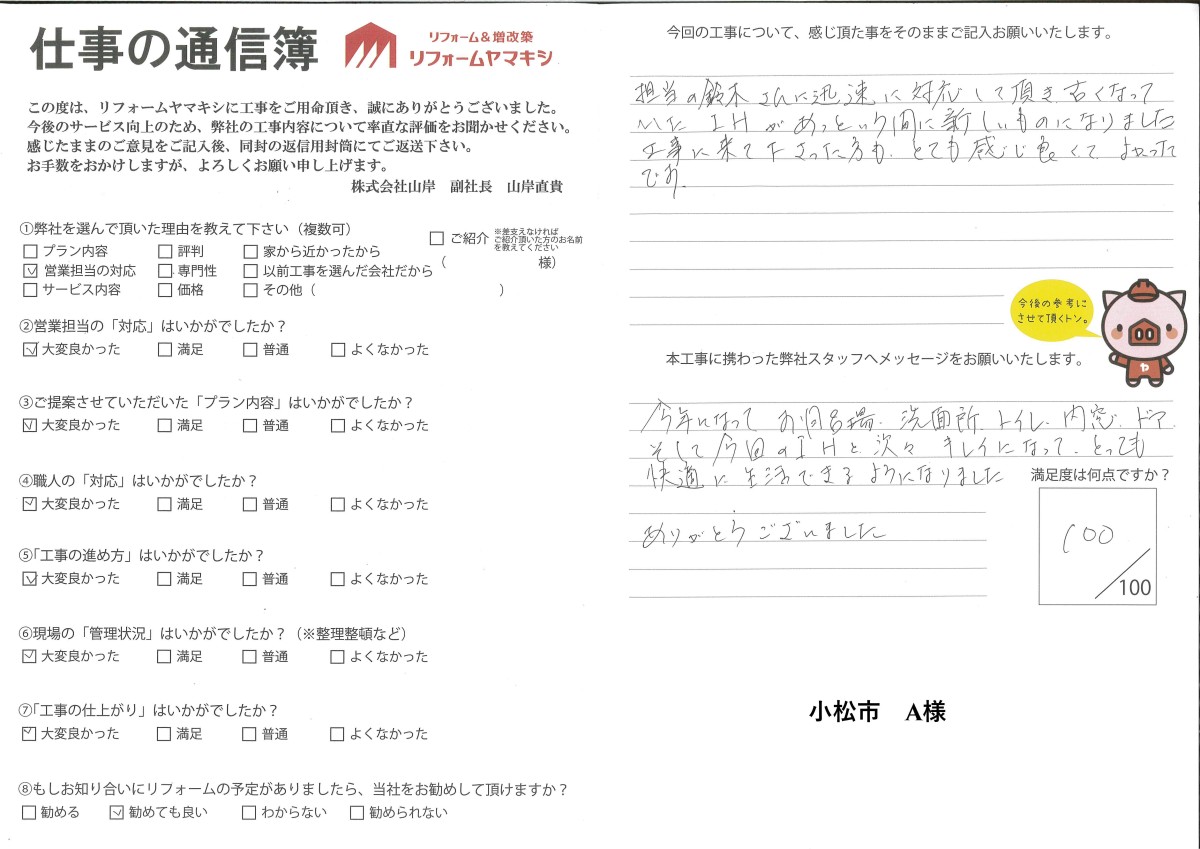 仕事の通信簿
リフォーム＆増改築
リフォームヤマキシ
この度は、リフォームヤマキシに工事をご用命頂き、誠にありがとうございました。
今後のサービス向上のため、弊社の工事内容について率直な評価をお聞かせください。
感じたままのご意見をご記入後、同封の返信用封筒にてご返送下さい。
お手数をおかけしますが、よろしくお願い申し上げます。
株式会社山岸　副社長　山岸直貴
①弊社を選んで頂いた理由を教えて下さい（複数可）
□ プラン内容　□ 評判　□ 家から近かったから
☑ 営業担当の対応　□ 専門性　□ 以前工事を選んだ会社だから
□ サービス内容　□ 価格　□ その他（　　）
□ ご紹介
※差支えなければ
ご紹介頂いた方のお名前
を教えてください
（　　様）
②営業担当の「対応」はいかがでしたか？
☑ 大変良かった　□ 満足　□ 普通　□ よくなかった
③ご提案させていただいた「プラン内容」はいかがでしたか？
☑ 大変良かった　□ 満足　□ 普通　□ よくなかった
④職人の「対応」はいかがでしたか？
☑ 大変良かった　□ 満足　□ 普通　□ よくなかった
⑤「工事の進め方」はいかがでしたか？
☑ 大変良かった　□ 満足　□ 普通　□ よくなかった
⑥現場の「管理状況」はいかがでしたか？（※整理整頓など）
☑ 大変良かった　□ 満足　□ 普通　□ よくなかった
⑦「工事の仕上がり」はいかがでしたか？
☑ 大変良かった　□ 満足　□ 普通　□ よくなかった
⑧もしお知り合いにリフォームの予定がありましたら、当社をお勧めして頂けますか？
□ 勧める　☑ 勧めても良い　□ わからない　□ 勧められない
今回の工事について、感じ頂た事をそのままご記入お願いいたします。
担当の鈴木さんに迅速に対応して頂き、古くなって
いたIHがあっという間に新しいものになりました
工事に来て下さった方も、とても感じ良くて よかった
です。
今後の参考に
させて頂くトン。
ヤ
本工事に携わった弊社スタッフへメッセージをお願いいたします。
今年になって お風呂場、洗面所、トイレ、内窓、ドア
そして今回のIHと、次々 キレイになって、とっても
快適に生活できるようになりました
ありがとうございました
満足度は何点ですか？
100
／100
小松市　A様